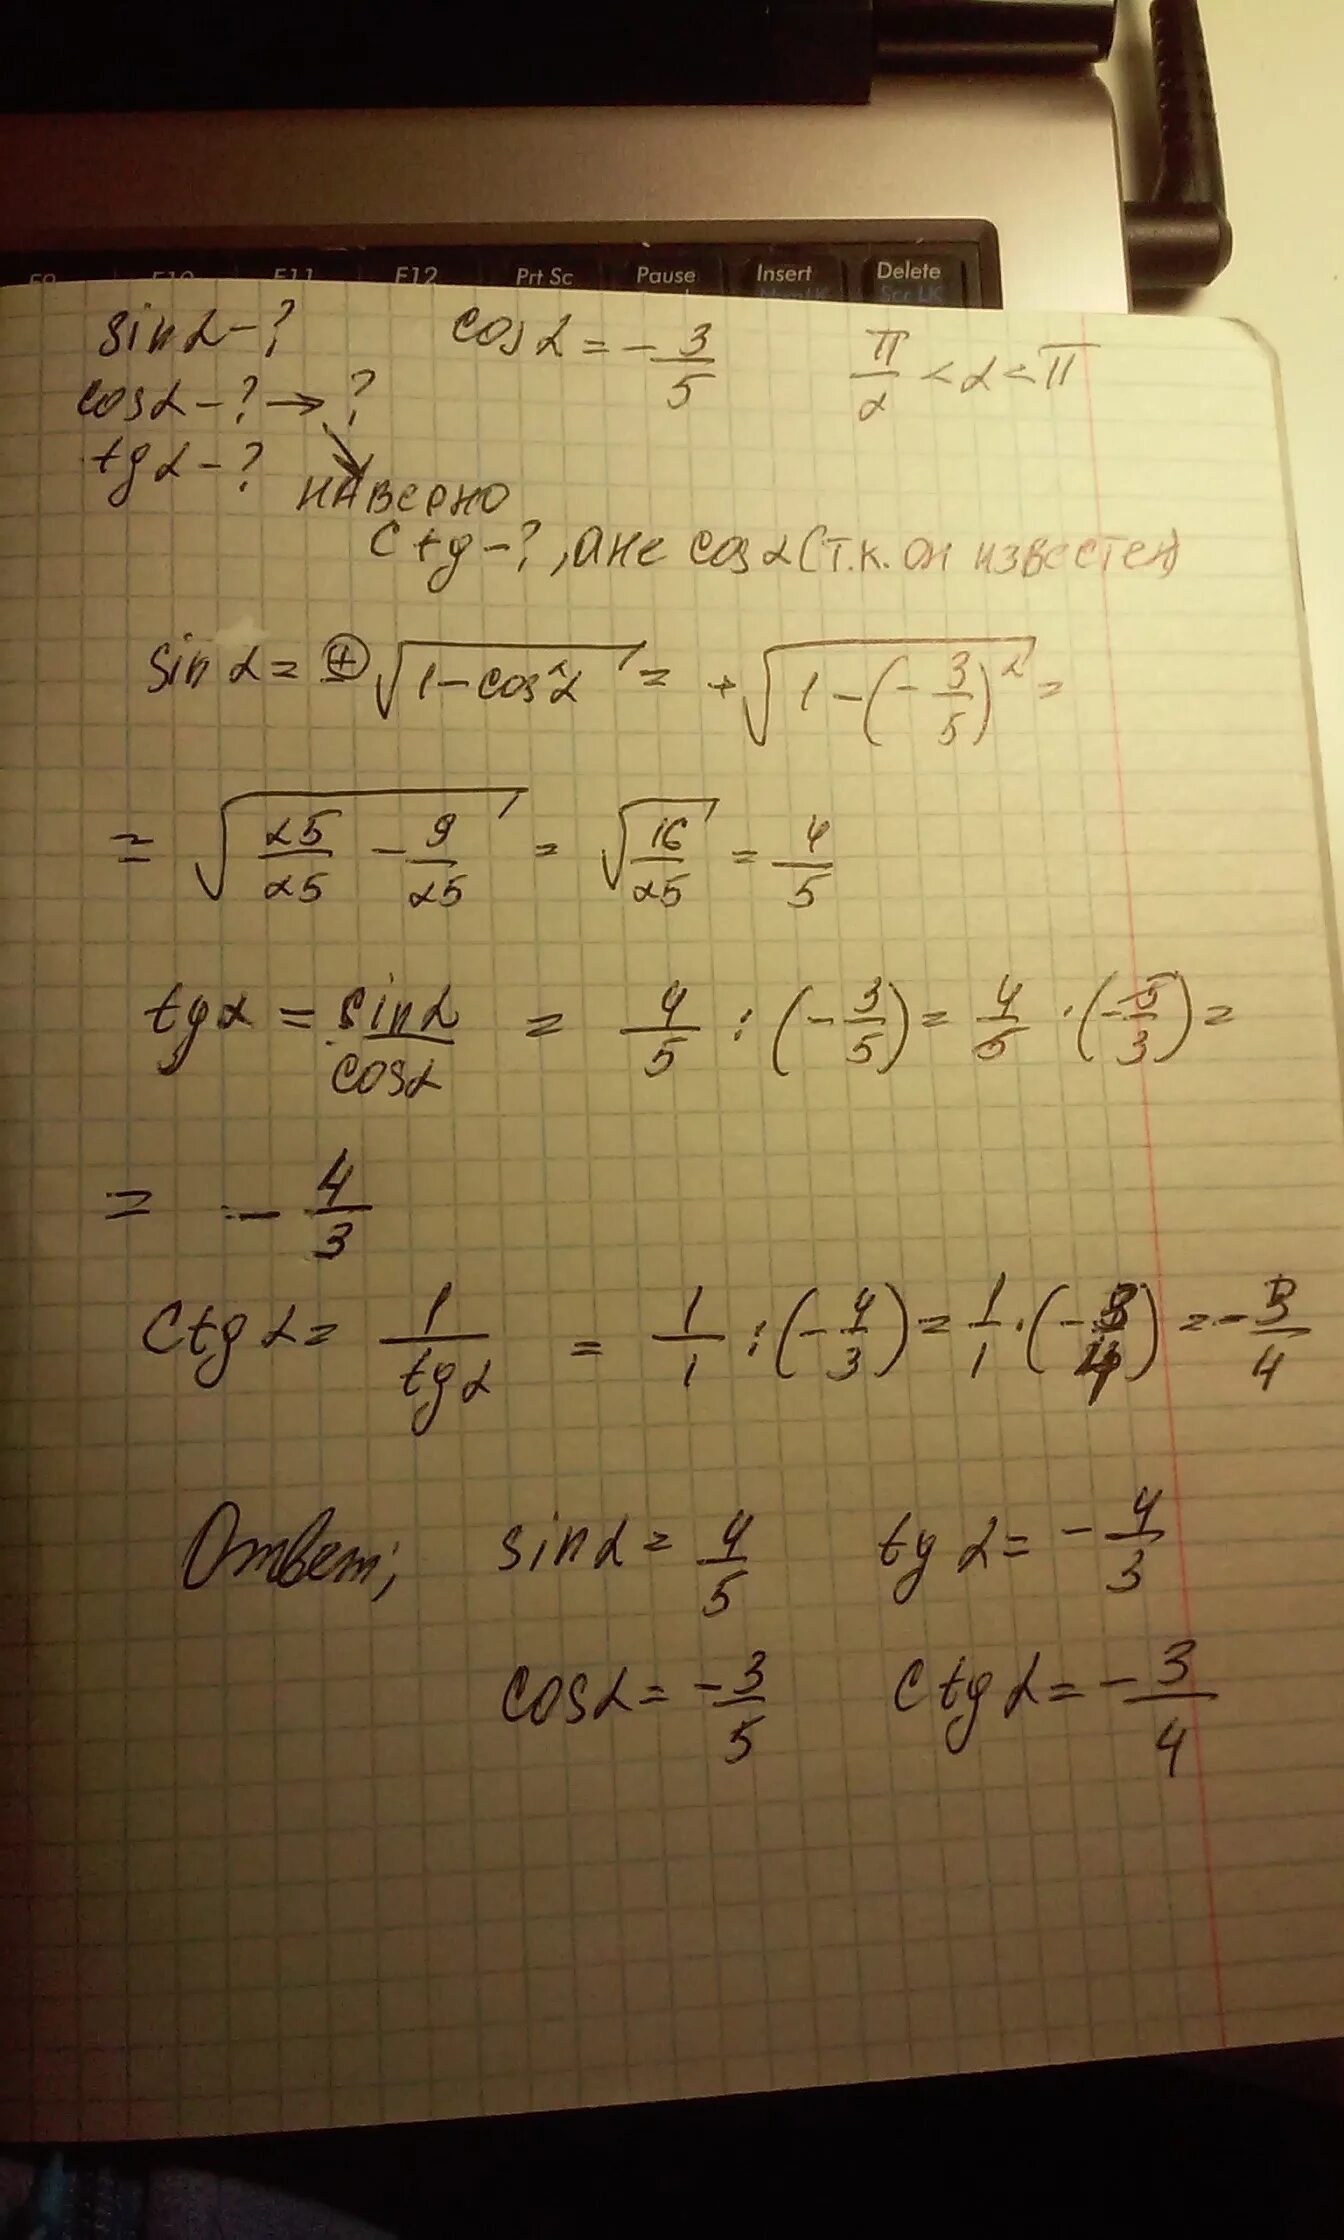 F9 F10 F11 F12 Prt Sc Pause Insert Delete
Scr LK
sin α - ? cos α = - 3/5 π/2 < α < π
cos α - ? → ?
tg α - ?
наверно
ctg - ?, а не cos α (т.к. он известен)
sin α = ⊕ √(1 - cos² α) = + √(1 - (- 3/5)²) =
= √(25/25 - 9/25) = √(16/25) = 4/5
tg α = sin α / cos α = 4/5 : (- 3/5) = 4/5 · (- 5/3) =
= - 4/3
Ctg α = 1 / tg α = 1/1 : (- 4/3) = 1/1 · (- 3/4) = - 3/4
Ответ; sin α = 4/5 tg α = - 4/3
cos α = - 3/5 ctg α = - 3/4